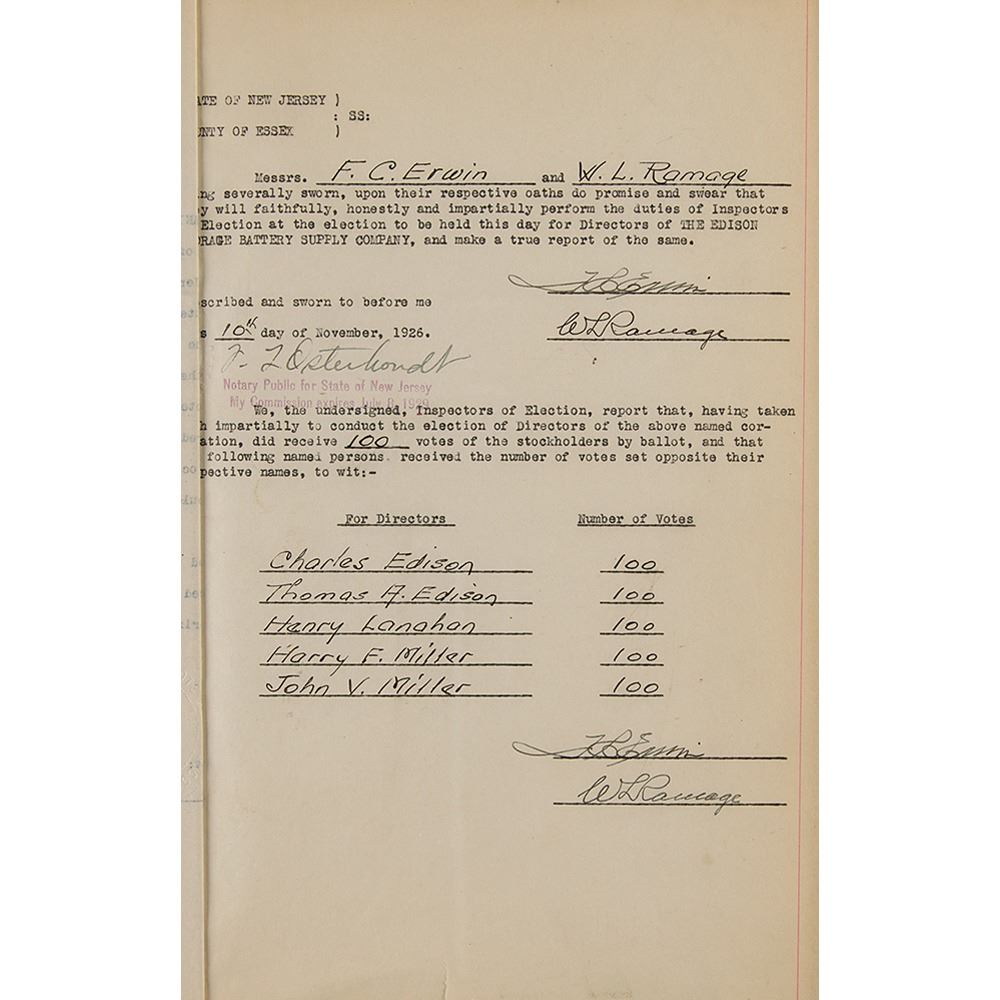 ATE OF NEW JERSEY )
: SS:
UNTY OF ESSEX )
Messrs. F. C. Erwin and W. L. Ramage
ng severally sworn, upon their respective oaths do promise and swear that
y will faithfully, honestly and impartially perform the duties of Inspectors
Election at the election to be held this day for Directors of THE EDISON
RAGE BATTERY SUPPLY COMPANY, and make a true report of the same.
F C Erwin
scribed and sworn to before me
W L Ramage
s 10th day of November, 1926.
F. L Osterhoudt
Notary Public for State of New Jersey
My Commission expires July 8, 1929
We, the undersigned, Inspectors of Election, report that, having taken
h impartially to conduct the election of Directors of the above named cor-
ation, did receive 100 votes of the stockholders by ballot, and that
following named persons. received the number of votes set opposite their
pective names, to wit:-
For Directors Number of Votes
Charles Edison 100
Thomas A. Edison 100
Henry Lanahan 100
Harry F. Miller 100
John V. Miller 100
F C Erwin
W L Ramage